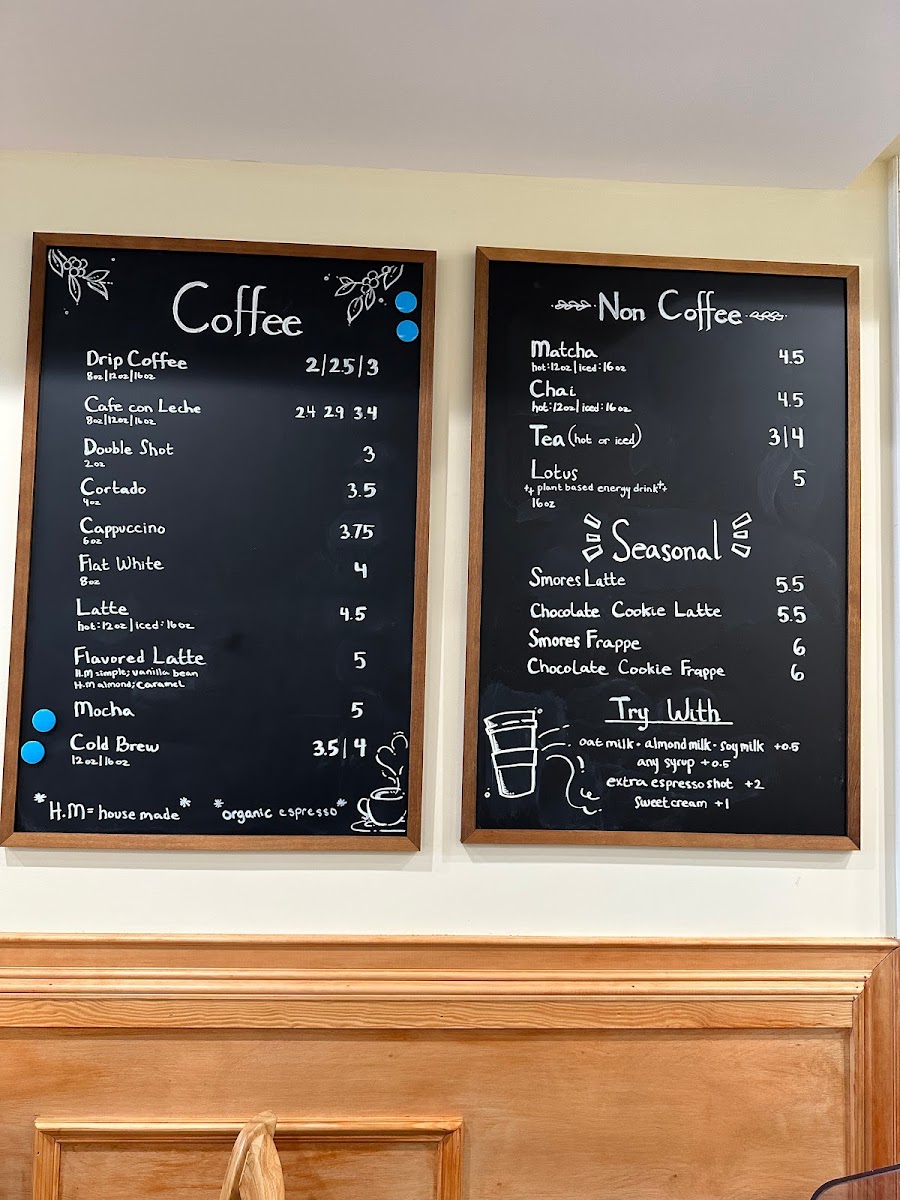 Coffee
Drip Coffee 2/25/3
8oz/12oz/16oz
Cafe con Leche 24 29 3.4
8oz/12oz/16oz
Double Shot 3
2oz
Cortado 3.5
4oz
Cappuccino 3.75
6oz
Flat White 4
8oz
Latte 4.5
hot:12oz/iced:16oz
Flavored Latte 5
H.M simple; vanilla bean
H.M almond; caramel
Mocha 5
Cold Brew 3.5/4
12oz/16oz
*H.M=house made* *organic espresso*
Non Coffee
Matcha 4.5
hot:12oz/iced:16oz
Chai 4.5
hot:12oz/iced:16oz
Tea (hot or iced) 3/4
Lotus 5
plant based energy drink
16oz
Seasonal
Smores Latte 5.5
Chocolate Cookie Latte 5.5
Smores Frappe 6
Chocolate Cookie Frappe 6
Try With
oat milk • almond milk • soy milk +0.5
any syrup +0.5
extra espresso shot +2
Sweet cream +1